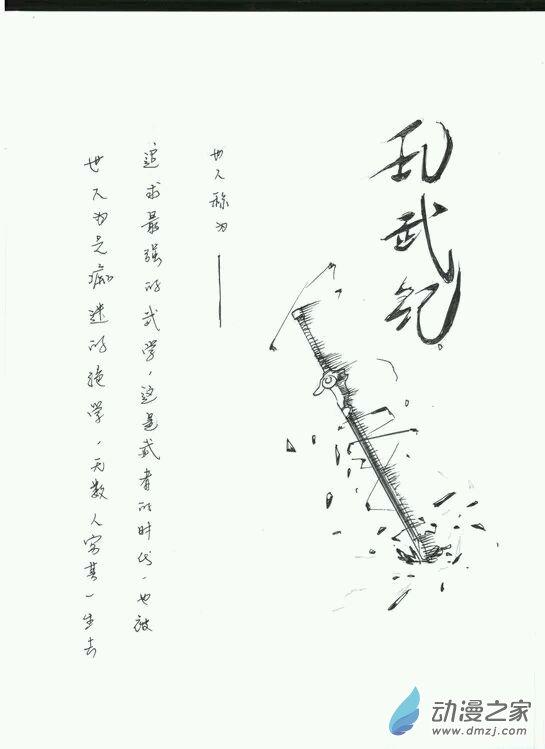 世人为之痴迷的绝学，无数人穷其一生去
追求最强的武学，这是武者的时代，也被
世人称为——
乱武纪。
动漫之家
www.dmzj.com